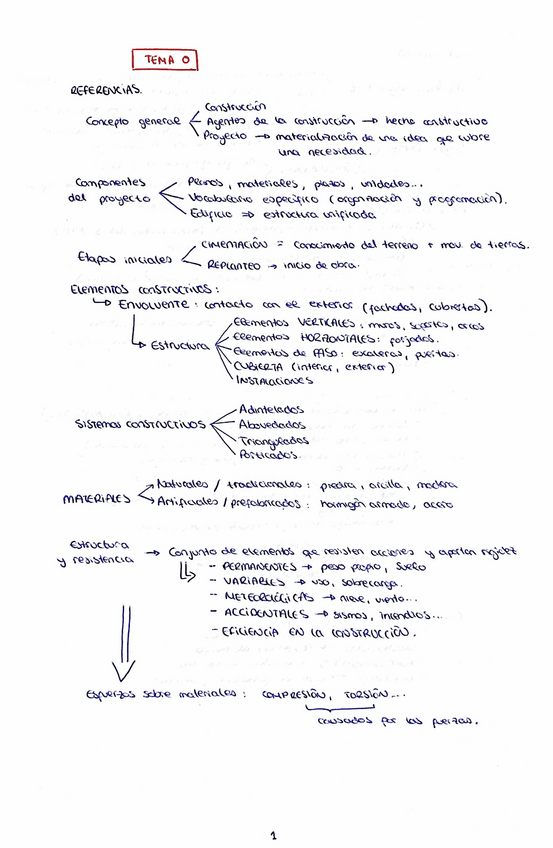 TEMA 0
REFERENCIAS.
Construcción
Concepto general Agentes de la construcción → hecho constructivo
Proyecto → materialización de una idea que cubre
una necesidad.
Componentes
del proyecto
Planos, materiales, plazos, unidades...
Vocabulario específico (organización y programación).
Edificio ⇒ estructura unificada
Etapas iniciales
CIMENTACIÓN = conocimiento del terreno + mov. de tierras.
REPLANTEO → inicio de obra.
ELEMENTOS CONSTRUCTIVOS:
↳ ENVOLVENTE: contacto con el exterior (fachadas, cubiertas).
↳ Estructura
Elementos VERTICALES: muros, soportes, arcos
Elementos HORIZONTALES: forjados.
Elementos de PASO: escaleras, puertas.
CUBIERTA (interior, exterior)
INSTALACIONES
SISTEMAS CONSTRUCTIVOS
Adintelados
Abovedados
Triangulados
Porticados.
MATERIALES
Naturales / tradicionales: piedra, arcilla, madera
Artificiales / prefabricados: hormigón armado, acero
Estructura
y resistencia → Conjunto de elementos que resisten acciones y aportan rigidez
- PERMANENTES → peso propio, suelo
- VARIABLES → uso, sobrecarga.
- METEOROLÓGICAS → nieve, viento...
- ACCIDENTALES → sismos, incendios...
- EFICIENCIA EN LA CONSTRUCCIÓN.
Esfuerzos sobre materiales: COMPRESIÓN, TORSIÓN...
causados por las fuerzas.
1